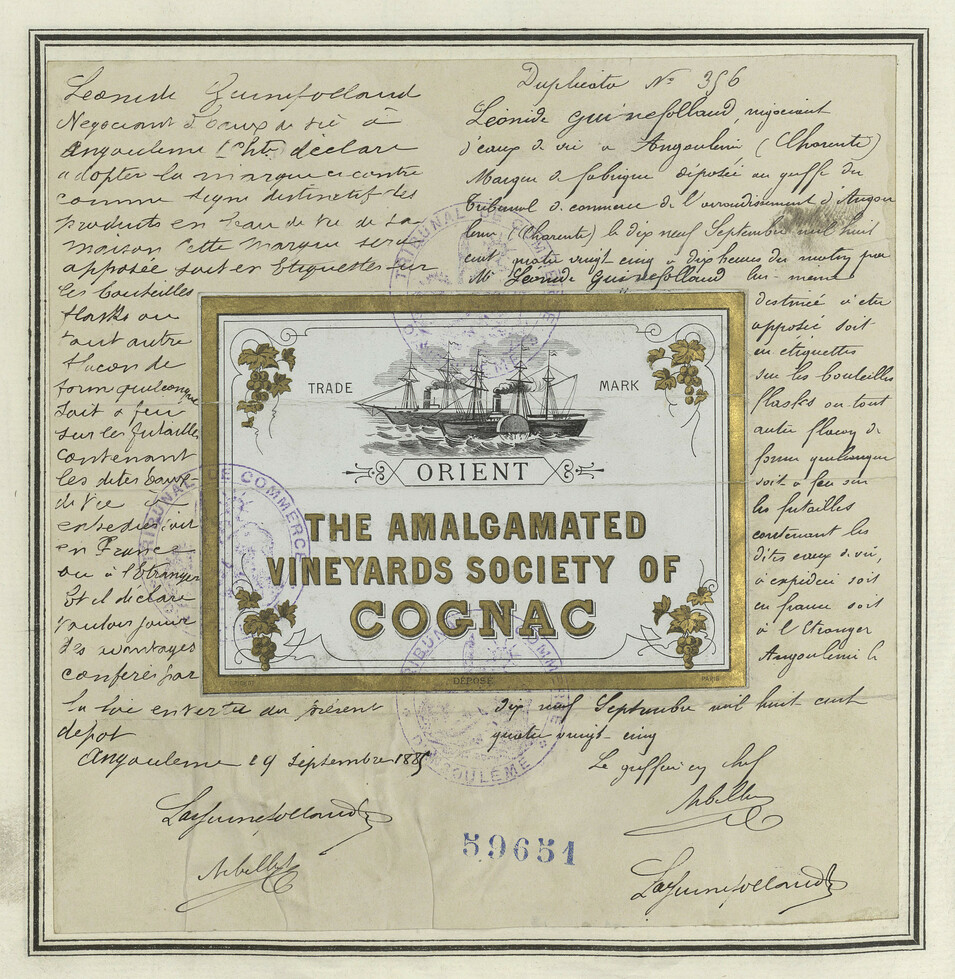 Léonide Guinefolleaud
Negociant d'eaux de vie à
Angouleme (Chte) déclare
adopter la marque ci contre
comme signe distinctif des
produits en eau de vie de sa
maison cette marque sera
apposée soit en Etiquettes sur
les bouteilles
flasks ou
tout autre
flacon de
form quelconque
soit à feu
sur les futailles
contenant
les dites eaux
de vie
en France
ou à l'Etranger
Et il declare
vouloir jouir
des avantages
conferés par
la loi en vertu du present
depot
Angouleme 19 septembre 1885
Duplicata No 356
Léonide Guinefolleaud, négociant
d'eaux de vie à Angoulême (Charente)
Marque de fabrique déposée au greffe du
Tribunal de commerce de l'arrondissement d'Angou
lême (Charente) le dix neuf Septembre mil huit
cent quatre vingt cinq à dix heures du matin par
Mr Léonide Guinefolleaud lui-même
destinée à être
apposée soit
en étiquettes
sur les bouteilles
flasks ou tout
autre flacon de
forme quelconque
soit à feu sur
les futailles
contenant les
dites eaux de vie,
à expédier soit
en france soit
à l'Etranger
Angoulême le
dix neuf Septembre mil huit cent
quatre vingt-cinq
Le greffier en chef
TRADE MARK
ORIENT
THE AMALGAMATED
VINEYARDS SOCIETY OF
COGNAC
DÉPOSÉ
PARIS
TRIBUNAL DE COMMERCE
TRIBUNAL DE COMMERCE
TRIBUNAL DE COMMERCE
D'ANGOULÊME
59651